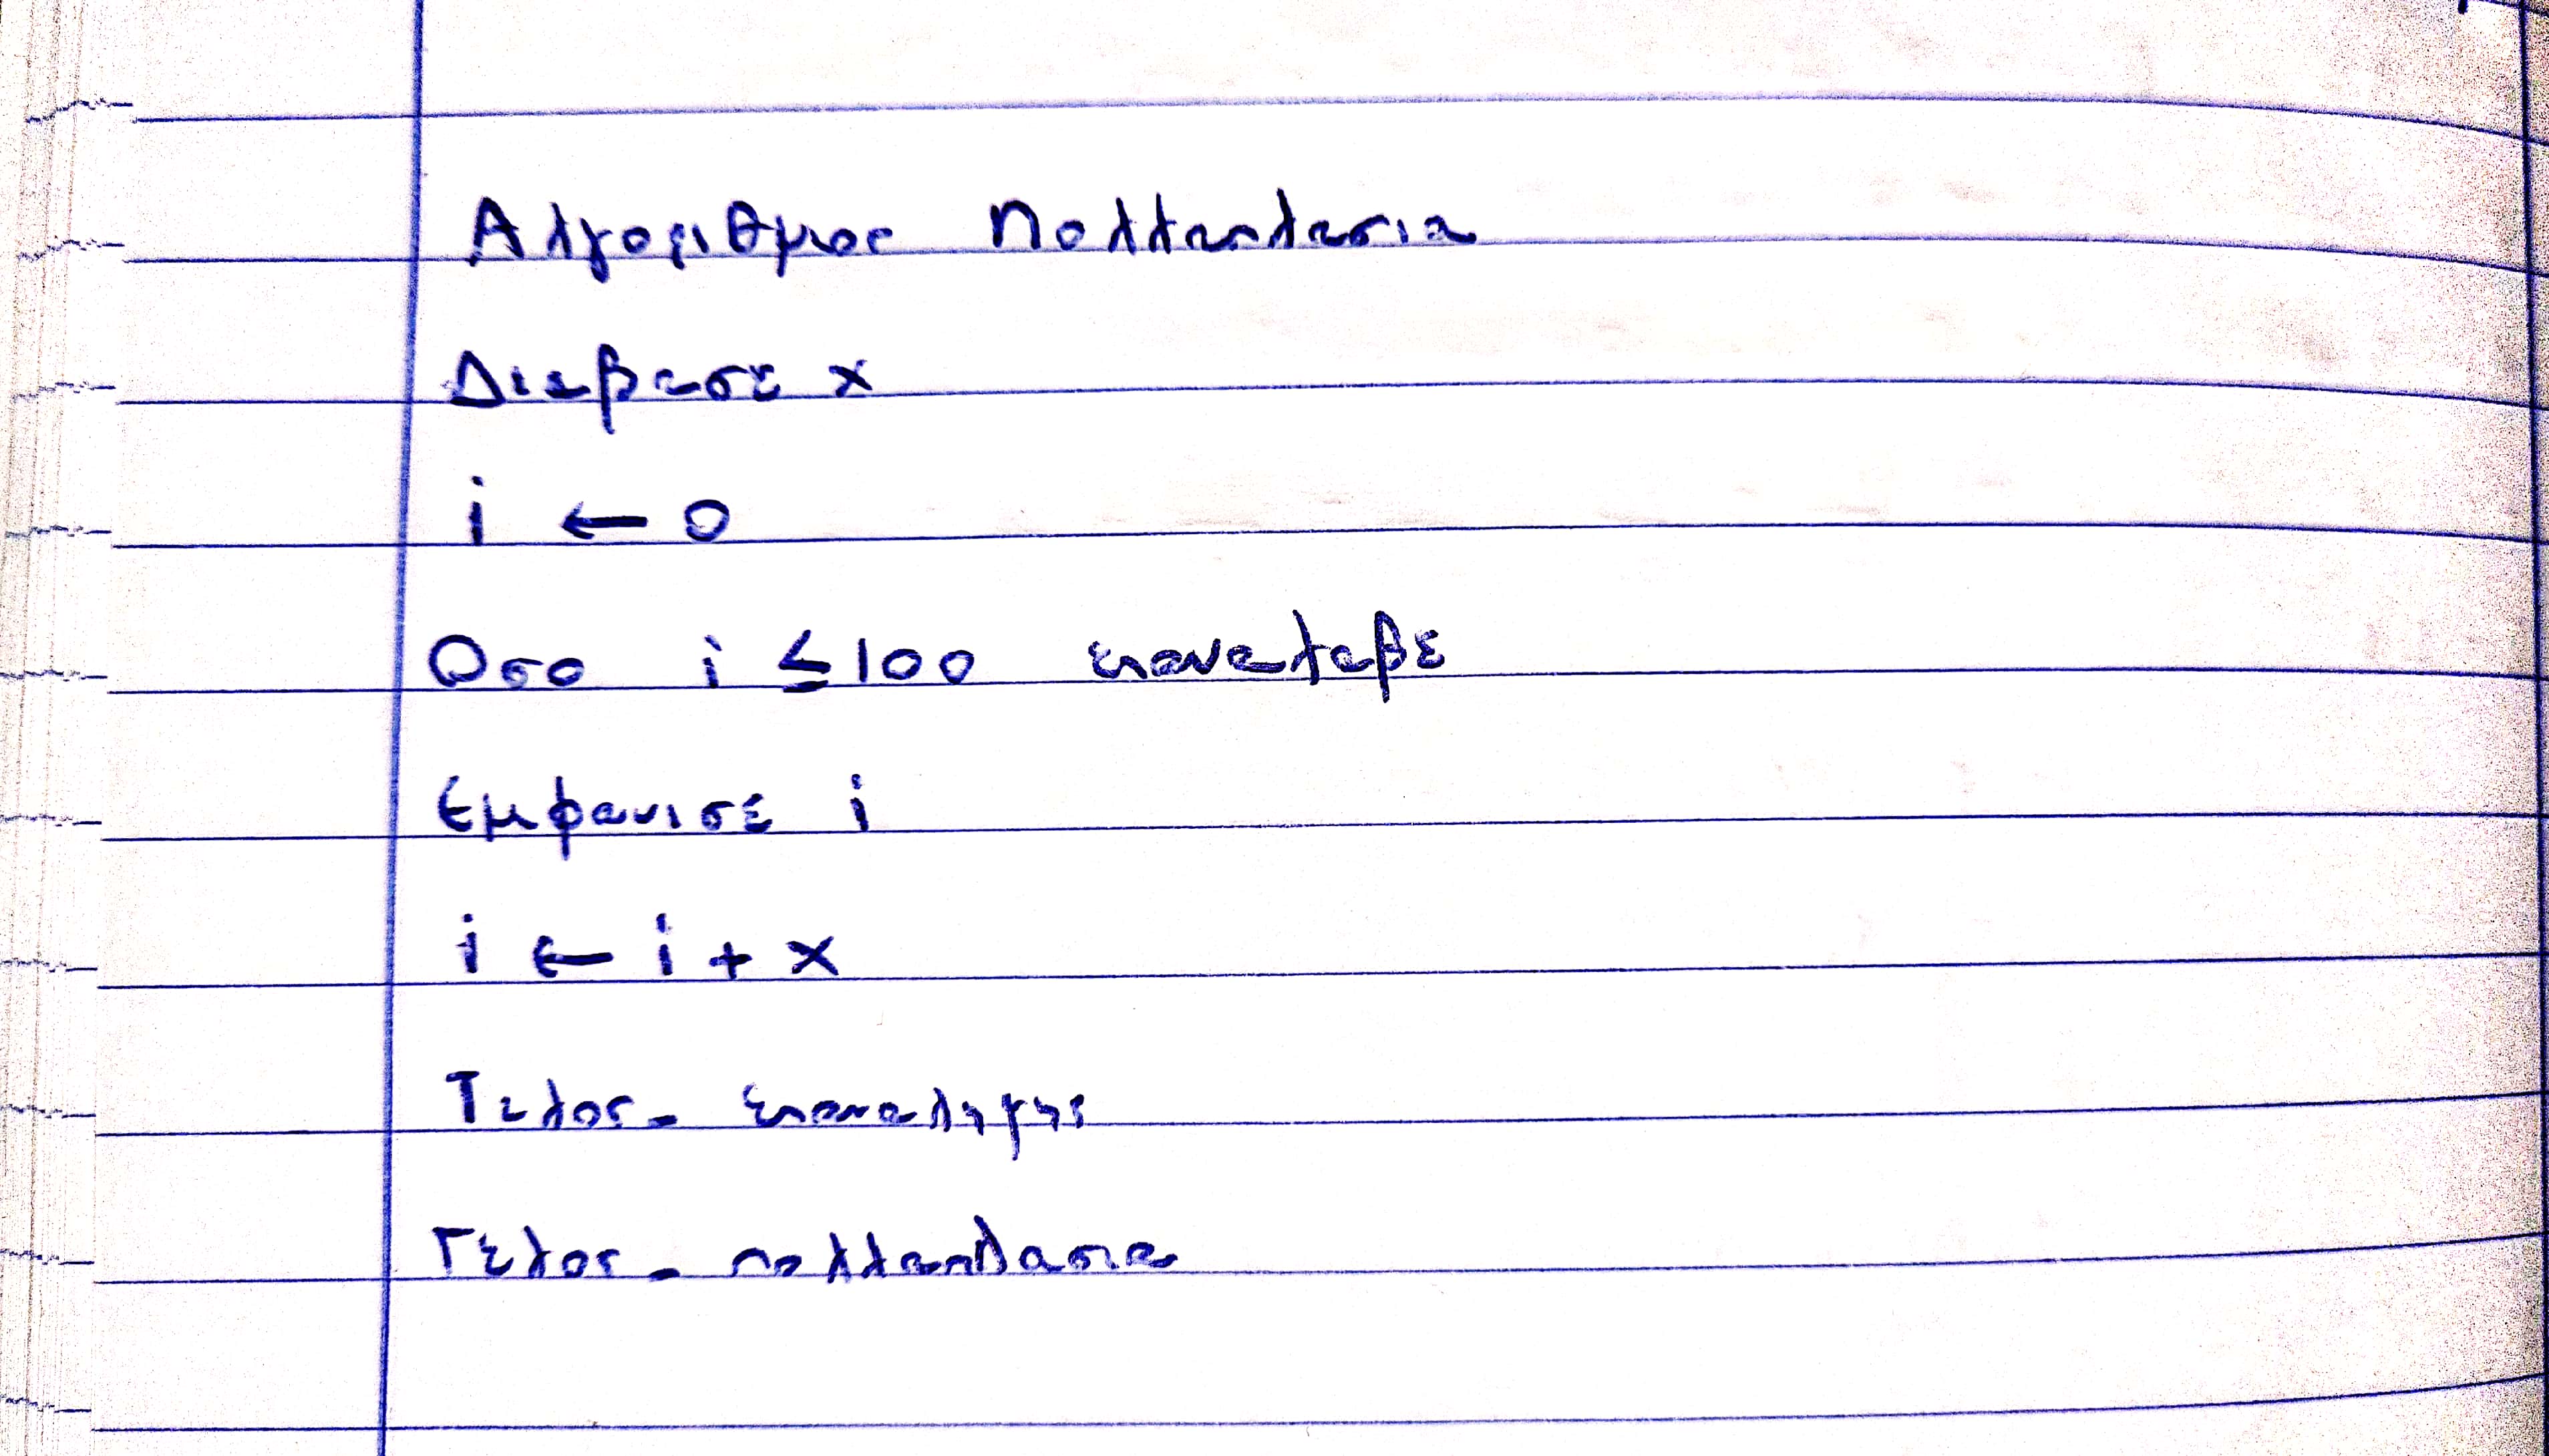 Αλγοριθμος Πολλαπλασια
Διαβασε x
i ← 0
Οσο i ≤ 100 επαναλαβε
Εμφανισε i
i ← i + x
Τελος_επαναληψης
Τελος_πολλαπλασια